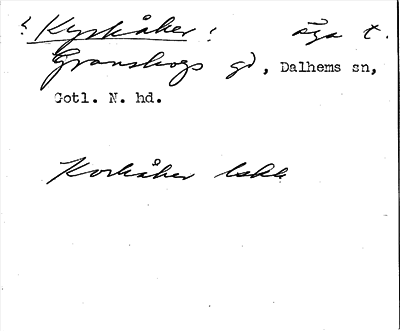 Kyrkåker, äga t.
Granskogs gd, Dalhems sn,
Gotl. N. hd.
Korkåker lskk